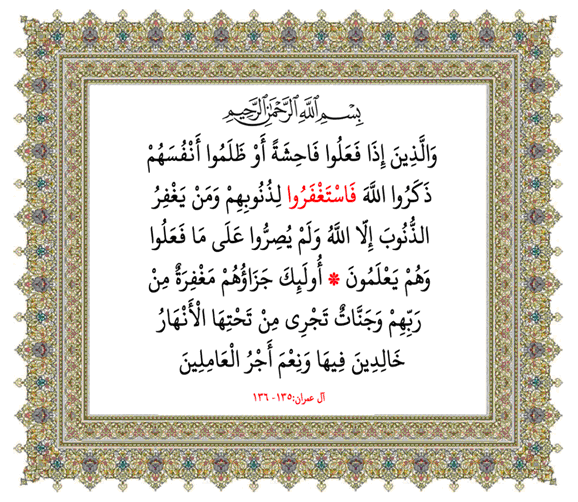 بِسْمِ اللَّهِ الرَّحْمَٰنِ الرَّحِيمِ
وَالَّذِينَ إِذَا فَعَلُوا فَاحِشَةً أَوْ ظَلَمُوا أَنْفُسَهُمْ
ذَكَرُوا اللَّهَ فَاسْتَغْفَرُوا لِذُنُوبِهِمْ وَمَنْ يَغْفِرُ
الذُّنُوبَ إِلَّا اللَّهُ وَلَمْ يُصِرُّوا عَلَى مَا فَعَلُوا
وَهُمْ يَعْلَمُونَ * أُولَئِكَ جَزَاؤُهُمْ مَغْفِرَةٌ مِنْ
رَبِّهِمْ وَجَنَّاتٌ تَجْرِى مِنْ تَحْتِهَا الْأَنْهَارُ
خَالِدِينَ فِيهَا وَنِعْمَ أَجْرُ الْعَامِلِينَ
آل عمران:١٣٥- ١٣٦